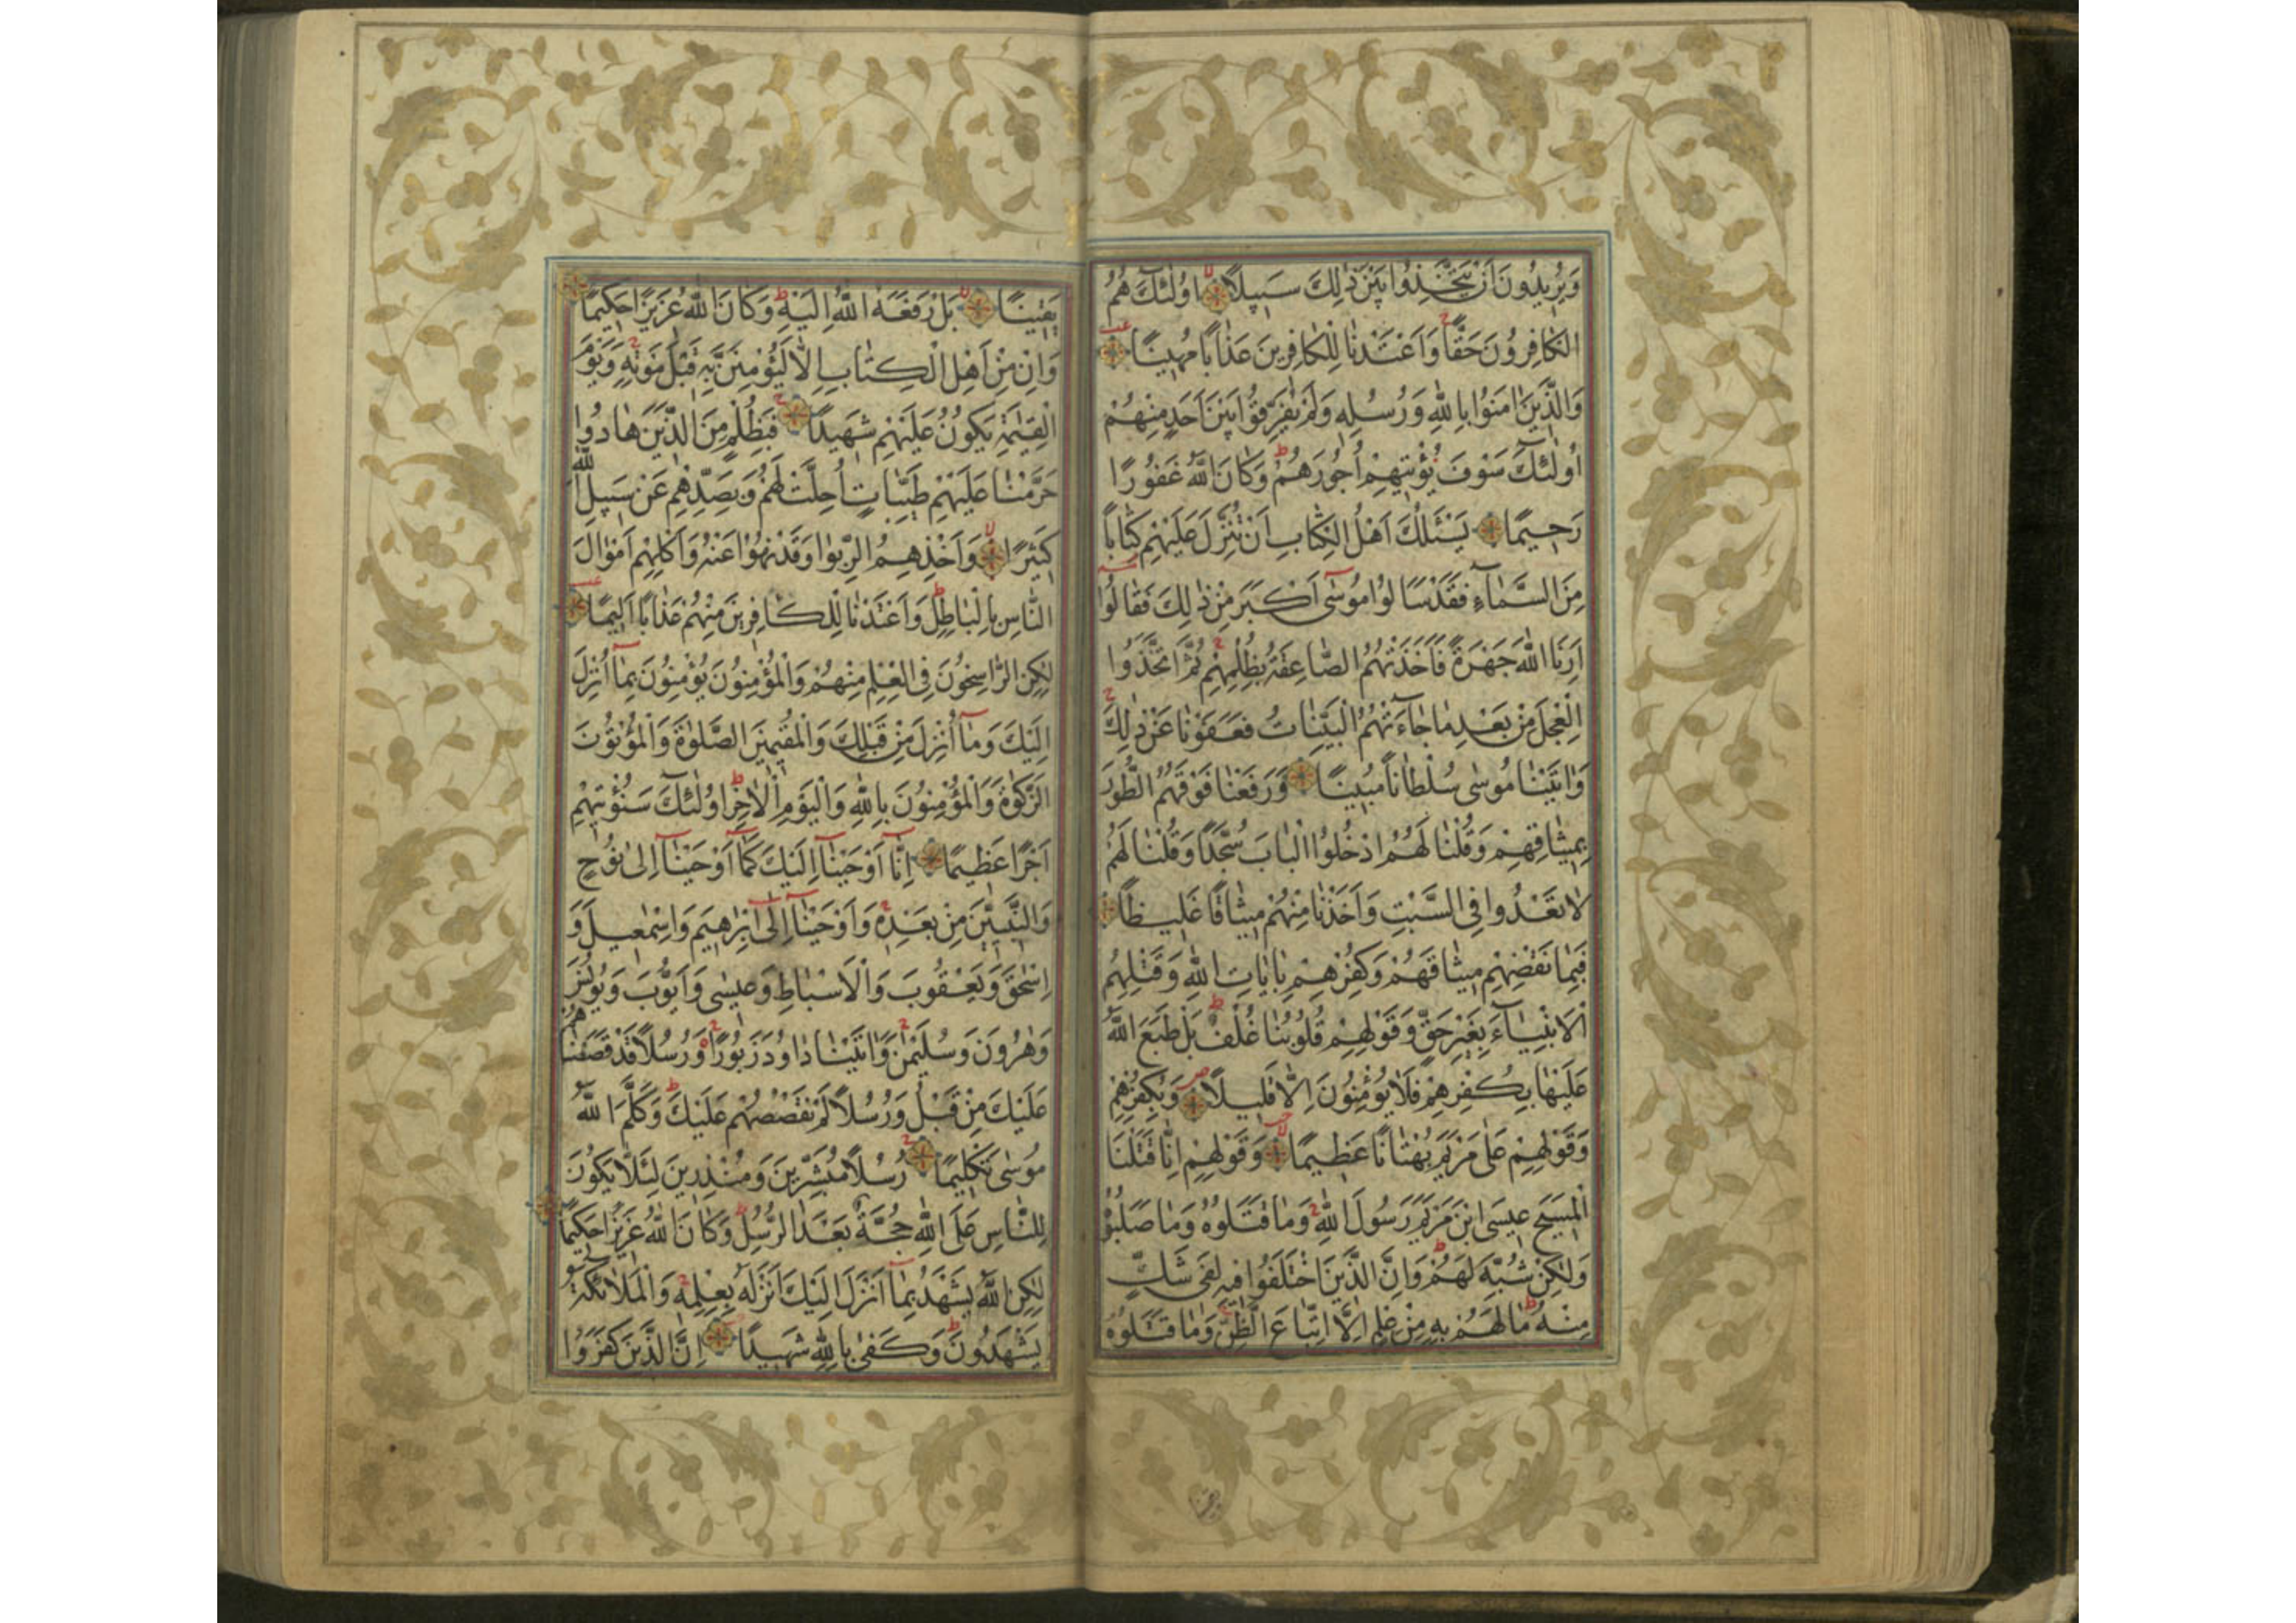 وَيُرِيدُونَ اَنْ يَتَّخِذُوا بَيْنَ ذٰلِكَ سَبِيلًا اُولٰئِكَ هُمُ
الْكَافِرُونَ حَقًّا وَاَعْتَدْنَا لِلْكَافِرِينَ عَذَابًا مُهِينًا
وَالَّذِينَ اٰمَنُوا بِاللّٰهِ وَرُسُلِهِ وَلَمْ يُفَرِّقُوا بَيْنَ اَحَدٍ مِنْهُمْ
اُولٰئِكَ سَوْفَ يُؤْتِيهِمْ اُجُورَهُمْ وَكَانَ اللّٰهُ غَفُورًا
رَحِيمًا يَسْئَلُكَ اَهْلُ الْكِتَابِ اَنْ تُنَزِّلَ عَلَيْهِمْ كِتَابًا
مِنَ السَّمَاءِ فَقَدْ سَاَلُوا مُوسٰى اَكْبَرَ مِنْ ذٰلِكَ فَقَالُوا
اَرِنَا اللّٰهَ جَهْرَةً فَاَخَذَتْهُمُ الصَّاعِقَةُ بِظُلْمِهِمْ ثُمَّ اتَّخَذُوا
الْعِجْلَ مِنْ بَعْدِ مَا جَاءَتْهُمُ الْبَيِّنَاتُ فَعَفَوْنَا عَنْ ذٰلِكَ
وَاٰتَيْنَا مُوسٰى سُلْطَانًا مُبِينًا وَرَفَعْنَا فَوْقَهُمُ الطُّورَ
بِمِيثَاقِهِمْ وَقُلْنَا لَهُمُ ادْخُلُوا الْبَابَ سُجَّدًا وَقُلْنَا لَهُمْ
لَا تَعْدُوا فِي السَّبْتِ وَاَخَذْنَا مِنْهُمْ مِيثَاقًا غَلِيظًا
فَبِمَا نَقْضِهِمْ مِيثَاقَهُمْ وَكُفْرِهِمْ بِاٰيَاتِ اللّٰهِ وَقَتْلِهِمُ
الْاَنْبِيَاءَ بِغَيْرِ حَقٍّ وَقَوْلِهِمْ قُلُوبُنَا غُلْفٌ بَلْ طَبَعَ اللّٰهُ
عَلَيْهَا بِكُفْرِهِمْ فَلَا يُؤْمِنُونَ اِلَّا قَلِيلًا وَبِكُفْرِهِمْ
وَقَوْلِهِمْ عَلٰى مَرْيَمَ بُهْتَانًا عَظِيمًا وَقَوْلِهِمْ اِنَّا قَتَلْنَا
الْمَسِيحَ عِيسَى ابْنَ مَرْيَمَ رَسُولَ اللّٰهِ وَمَا قَتَلُوهُ وَمَا صَلَبُوهُ
وَلٰكِنْ شُبِّهَ لَهُمْ وَاِنَّ الَّذِينَ اخْتَلَفُوا فِيهِ لَفِي شَكٍّ
مِنْهُ مَا لَهُمْ بِهِ مِنْ عِلْمٍ اِلَّا اتِّبَاعَ الظَّنِّ وَمَا قَتَلُوهُ
يَقِينًا بَلْ رَفَعَهُ اللّٰهُ اِلَيْهِ وَكَانَ اللّٰهُ عَزِيزًا حَكِيمًا
وَاِنْ مِنْ اَهْلِ الْكِتَابِ اِلَّا لَيُؤْمِنَنَّ بِهِ قَبْلَ مَوْتِهِ وَيَوْمَ
الْقِيٰمَةِ يَكُونُ عَلَيْهِمْ شَهِيدًا فَبِظُلْمٍ مِنَ الَّذِينَ هَادُوا
حَرَّمْنَا عَلَيْهِمْ طَيِّبَاتٍ اُحِلَّتْ لَهُمْ وَبِصَدِّهِمْ عَنْ سَبِيلِ اللّٰهِ
كَثِيرًا وَاَخْذِهِمُ الرِّبٰوا وَقَدْ نُهُوا عَنْهُ وَاَكْلِهِمْ اَمْوَالَ
النَّاسِ بِالْبَاطِلِ وَاَعْتَدْنَا لِلْكَافِرِينَ مِنْهُمْ عَذَابًا اَلِيمًا
لٰكِنِ الرَّاسِخُونَ فِي الْعِلْمِ مِنْهُمْ وَالْمُؤْمِنُونَ يُؤْمِنُونَ بِمَا اُنْزِلَ
اِلَيْكَ وَمَا اُنْزِلَ مِنْ قَبْلِكَ وَالْمُقِيمِينَ الصَّلٰوةَ وَالْمُؤْتُونَ
الزَّكٰوةَ وَالْمُؤْمِنُونَ بِاللّٰهِ وَالْيَوْمِ الْاٰخِرِ اُولٰئِكَ سَنُؤْتِيهِمْ
اَجْرًا عَظِيمًا اِنَّا اَوْحَيْنَا اِلَيْكَ كَمَا اَوْحَيْنَا اِلٰى نُوحٍ
وَالنَّبِيِّينَ مِنْ بَعْدِهِ وَاَوْحَيْنَا اِلٰى اِبْرٰهِيمَ وَاِسْمٰعِيلَ وَ
اِسْحٰقَ وَيَعْقُوبَ وَالْاَسْبَاطِ وَعِيسٰى وَاَيُّوبَ وَيُونُسَ
وَهٰرُونَ وَسُلَيْمٰنَ وَاٰتَيْنَا دَاوُدَ زَبُورًا وَرُسُلًا قَدْ قَصَصْنَاهُمْ
عَلَيْكَ مِنْ قَبْلُ وَرُسُلًا لَمْ نَقْصُصْهُمْ عَلَيْكَ وَكَلَّمَ اللّٰهُ
مُوسٰى تَكْلِيمًا رُسُلًا مُبَشِّرِينَ وَمُنْذِرِينَ لِئَلَّا يَكُونَ
لِلنَّاسِ عَلَى اللّٰهِ حُجَّةٌ بَعْدَ الرُّسُلِ وَكَانَ اللّٰهُ عَزِيزًا حَكِيمًا
لٰكِنِ اللّٰهُ يَشْهَدُ بِمَا اَنْزَلَ اِلَيْكَ اَنْزَلَهُ بِعِلْمِهِ وَالْمَلٰئِكَةُ
يَشْهَدُونَ وَكَفٰى بِاللّٰهِ شَهِيدًا اِنَّ الَّذِينَ كَفَرُوا